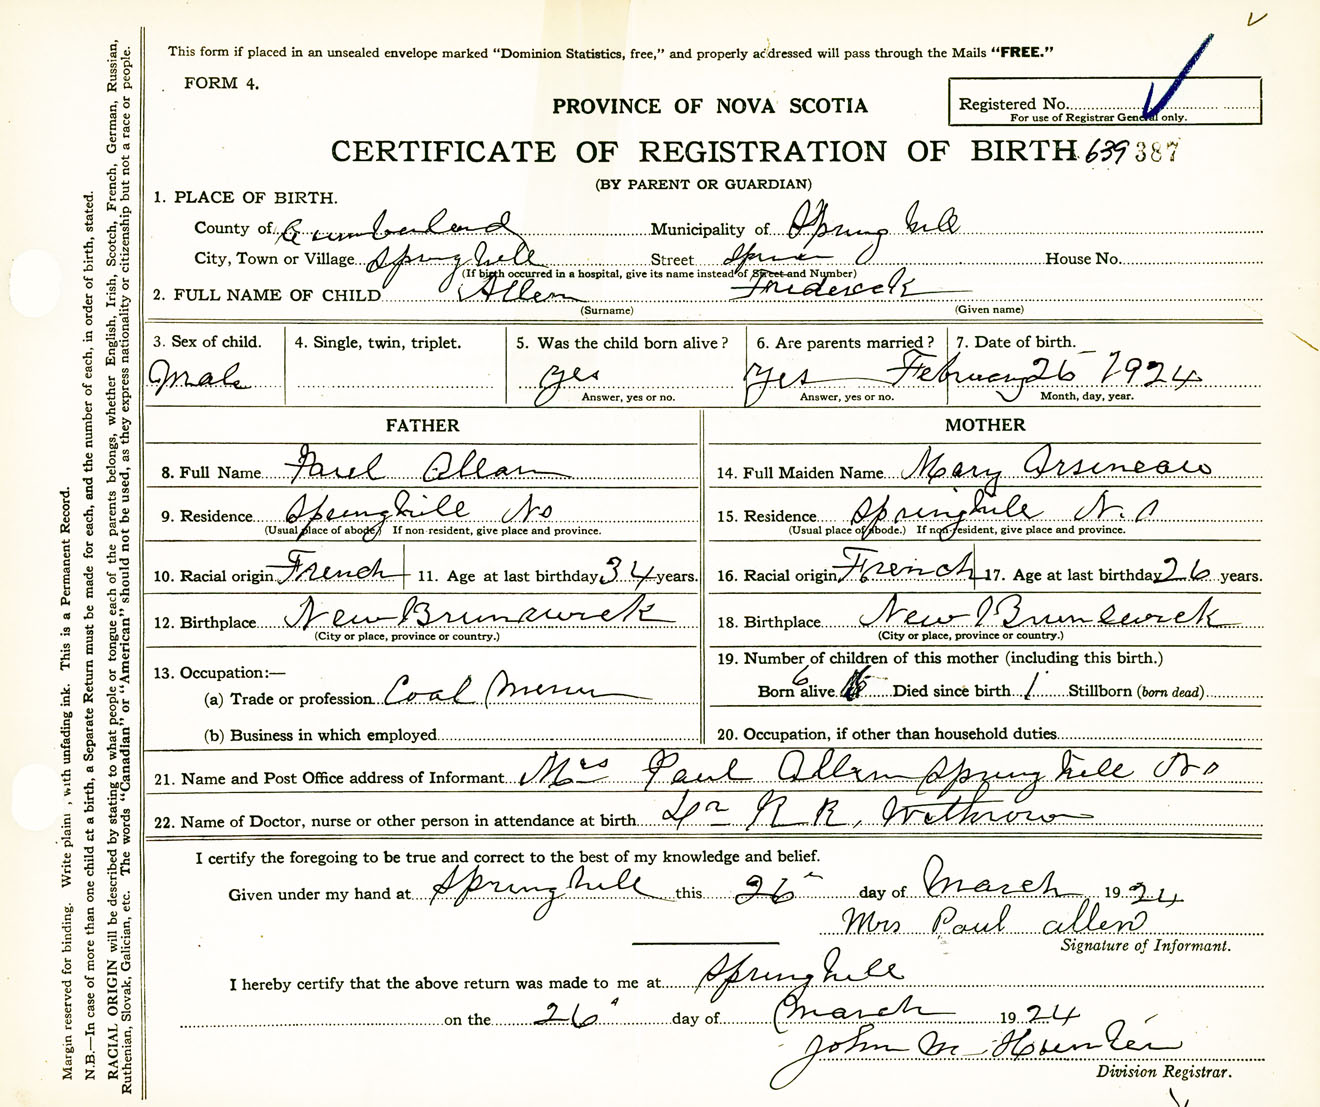 This form if placed in an unsealed envelope marked "Dominion Statistics, free," and properly addressed will pass through the Mails "FREE."
FORM 4.
PROVINCE OF NOVA SCOTIA
Registered No.
For use of Registrar General only.
CERTIFICATE OF REGISTRATION OF BIRTH 639 387
(BY PARENT OR GUARDIAN)
1. PLACE OF BIRTH.
County of Cumberland Municipality of Spring hill
City, Town or Village Spring hill Street House No.
(If birth occurred in a hospital, give its name instead of Street and Number)
2. FULL NAME OF CHILD Allen Frederick
(Surname) (Given name)
3. Sex of child. 4. Single, twin, triplet. 5. Was the child born alive? 6. Are parents married? 7. Date of birth.
Male yes yes February 26 1924
Answer, yes or no. Answer, yes or no. Month, day, year.
FATHER MOTHER
8. Full Name Paul Allan 14. Full Maiden Name Mary Arseneau
9. Residence Springhill NS 15. Residence Springhill N.S
(Usual place of abode) If non-resident, give place and province. (Usual place of abode.) If non-resident, give place and province.
10. Racial origin French 11. Age at last birthday 34 years. 16. Racial origin French 17. Age at last birthday 26 years.
12. Birthplace New Brunswick 18. Birthplace New Brunswick
(City or place, province or country.) (City or place, province or country.)
13. Occupation:— 19. Number of children of this mother (including this birth.)
(a) Trade or profession Coal Miner Born alive 6 Died since birth 1 Stillborn (born dead)
(b) Business in which employed 20. Occupation, if other than household duties
21. Name and Post Office address of Informant Mrs Paul Allen Spring hill NS
22. Name of Doctor, nurse or other person in attendance at birth Dr R R. Withrow
I certify the foregoing to be true and correct to the best of my knowledge and belief.
Given under my hand at Spring hill this 26 day of March 1924
Mrs Paul Allen
Signature of Informant.
I hereby certify that the above return was made to me at Spring hill
on the 26 day of March 1924
John M Hunter
Division Registrar.
Margin reserved for binding. Write plainly, with unfading ink. This is a Permanent Record.
N.B.—In case of more than one child at a birth, a Separate Return must be made for each, and the number of each, in order of birth, stated.
RACIAL ORIGIN will be described by stating to what people or tongue each of the parents belongs, whether English, Irish, Scotch, French, German, Russian,
Ruthenian, Slovak, Galician, etc. The words "Canadian" or "American" should not be used, as they express nationality or citizenship but not a race or people.